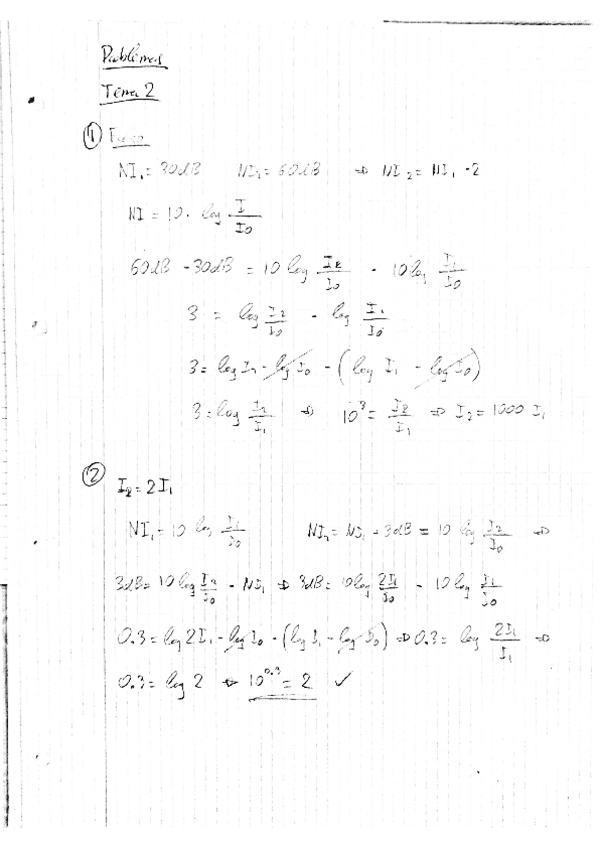 Problemas
Tema 2
①
NI₁ = 30dB NI₂ = 60dB ⇒ NI₂ = NI₁ · 2
NI = 10 · log I/I₀
60dB - 30dB = 10 log I₂/I₀ - 10 log I₁/I₀
3 = log I₂/I₀ - log I₁/I₀
3 = log I₂ - log I₀ - (log I₁ - log I₀)
3 = log I₂/I₁ ⇒ 10³ = I₂/I₁ ⇒ I₂ = 1000 I₁
② I₂ = 2I₁
NI₁ = 10 log I₁/I₀ NI₂ = NI₁ + 3dB = 10 log I₂/I₀ ⇒
3dB = 10 log I₂/I₀ - NI₁ ⇒ 3dB = 10 log 2I₁/I₀ - 10 log I₁/I₀
0.3 = log 2I₁ - log I₀ - (log I₁ - log I₀) ⇒ 0.3 = log 2I₁/I₁ ⇒
0.3 = log 2 ⇒ 10^0.3 = 2 ✓